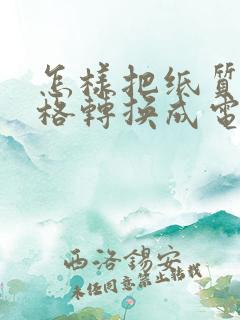 怎樣把纸質
格轉换成電
西洛錫安
未经同意禁止转载